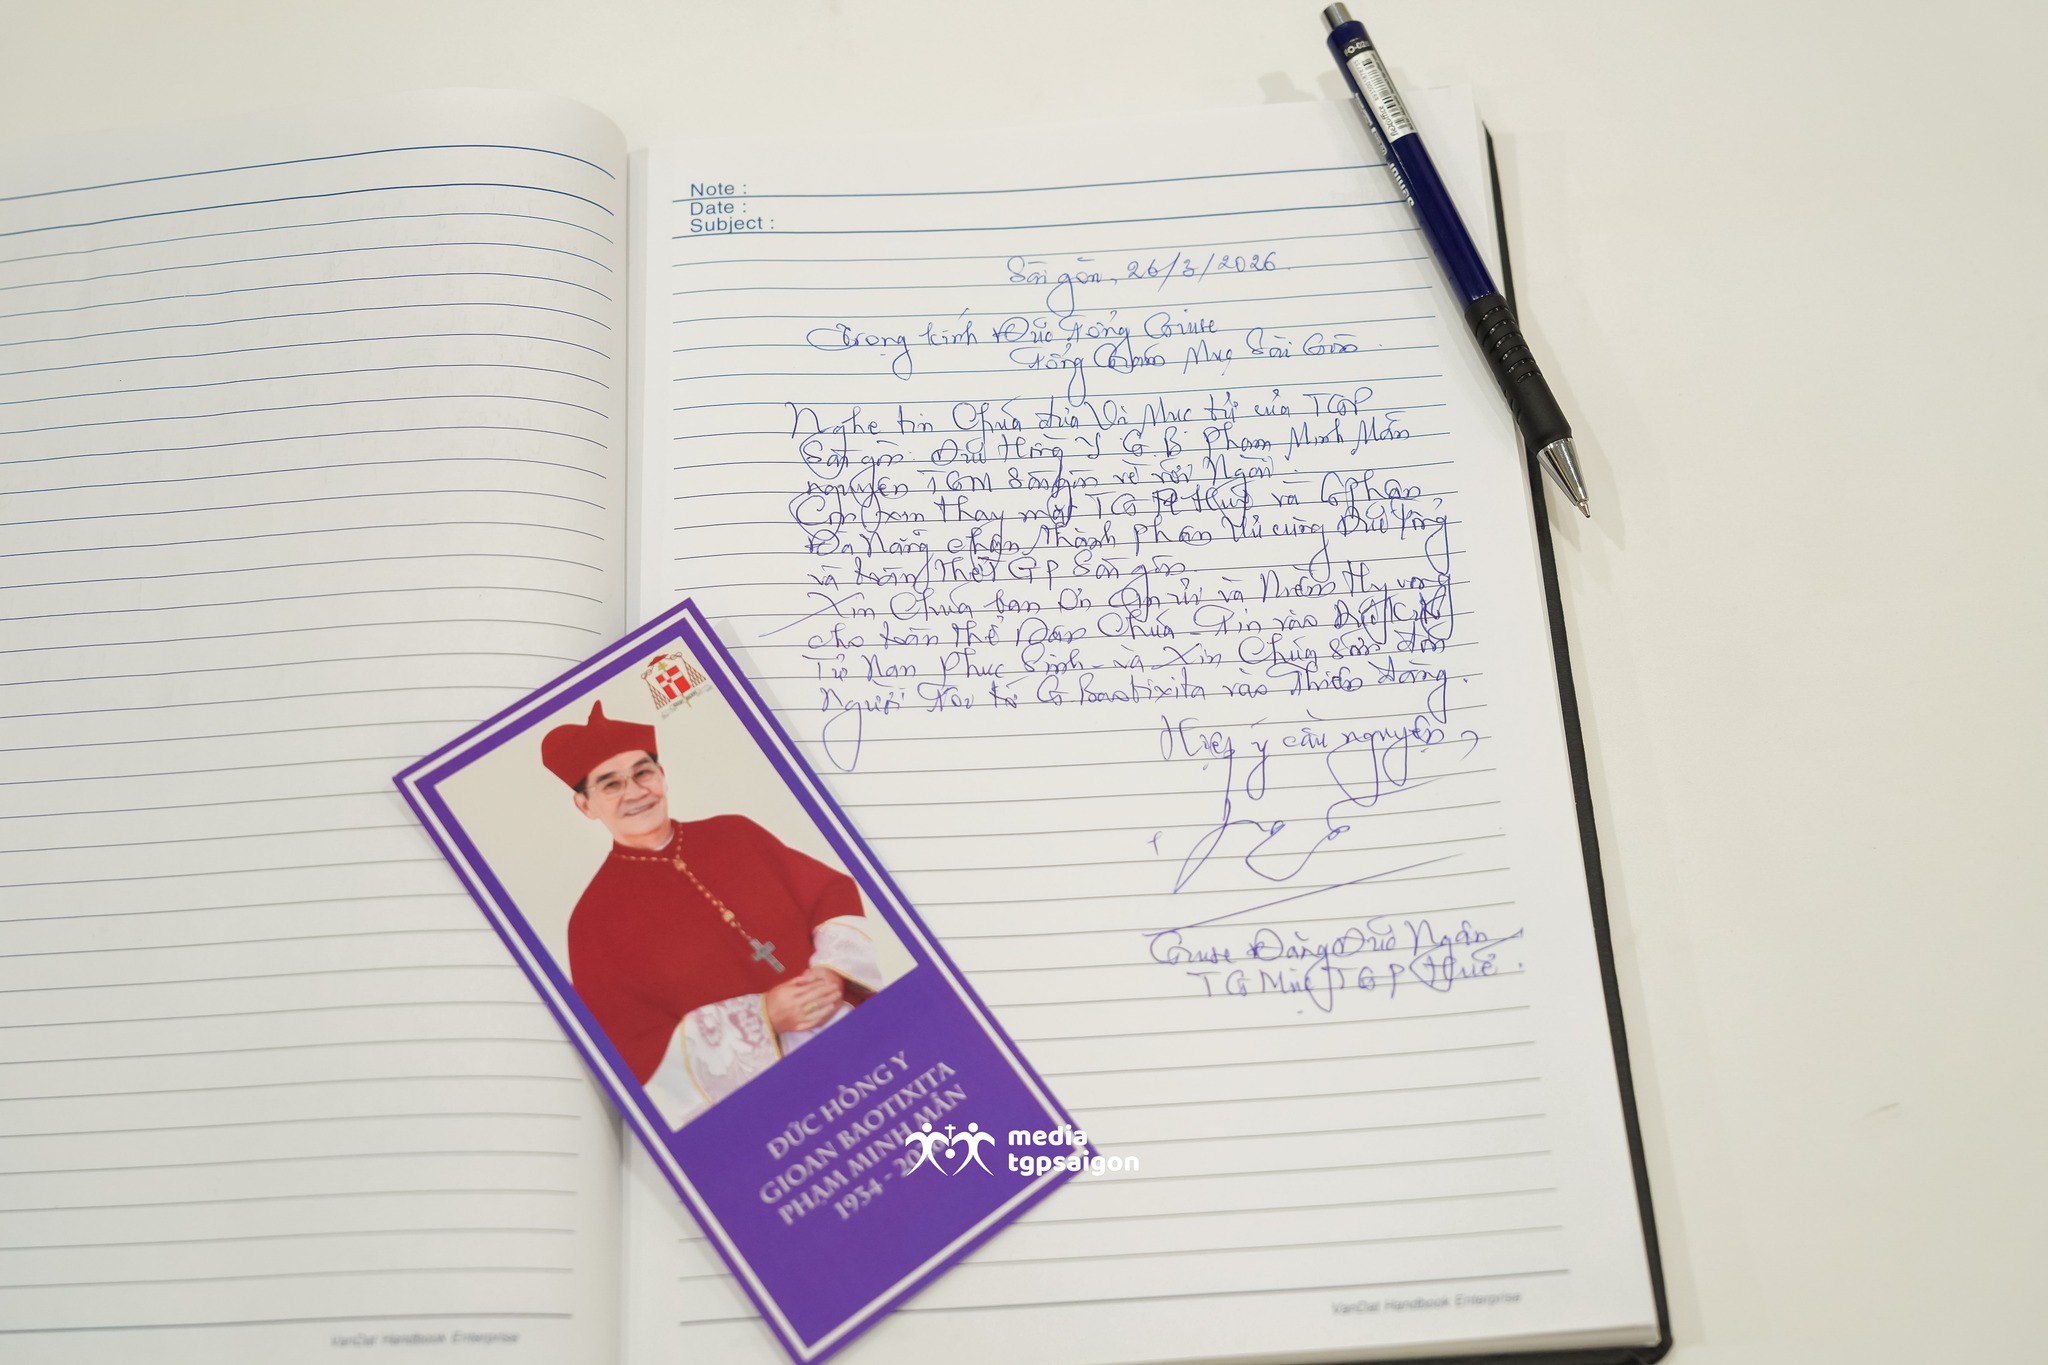 Note :
Date :
Subject :
Sài gòn, 26/3/2026.
Trọng kính Đức Tổng Giuse
Tổng Giám Mục Sài Gòn.
Nghe tin Chúa đưa Vị Mục tử của TGP
Sài gòn: Đức Hồng Y G.B Phạm Minh Mẫn
nguyên TGM Sài gòn về với Ngài.
Con xin thay mặt TGP Huế và GPhận
Đà Nẵng chân thành Phân Ưu cùng Đức Tổng
và toàn thể GP Sài gòn.
Xin Chúa ban Ơn An ủi và Niềm Hy vọng
cho toàn thể Dân Chúa Tin vào Đức Kitô
Tử Nạn Phục Sinh và Xin Chúa sớm đón
Người Tôi tớ G.Baotixita vào Thiên đàng.
Hiệp ý cầu nguyện,
Giuse Đặng Đức Ngân
TG Mục TGP Huế.
ĐỨC HỒNG Y
GIOAN BAOTIXITA
PHẠM MINH MẪN
1934 - 20
media
tgpsaigon
VanDat Handbook Enterprise
VanDat Handbook Enterprise